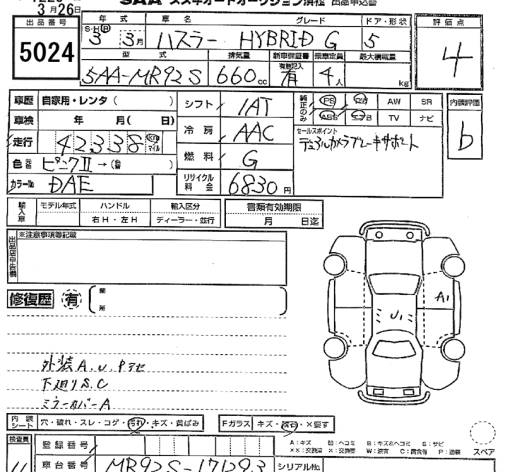 3月26日
SAA スズキオートオークション浜松 出品申込書
出品番号 5024
年式 車名 グレード ドア・形状 評価点
S・H・R 3年 3月 ハスラー HYBRID G 5 4
型式 排気量 新車保証書 乗車定員 最大積載量
5AA-MR92S 660cc 有 4人 kg
車歴 自家用・レンタ( ) シフト IAT 純正のみ PS PW AW SR 内装評価
車検 年 月( 日) 冷房 AAC ABS TV ナビ b
走行 42338 セールスポイント
色 ピンクII →( ) 燃料 G デュアルカメラブレーキサポート
カラーNo DAE リサイクル料金 6830円
輸入車 モデル年式 ハンドル 輸入区分 書類有効期限
右H・左H ディーラー・並行 月 日迄
出品店申告欄 ※注意事項等記載
修復歴 有 箇所
A1
U1
外装A.U.Pキセ
下廻りS.C
ミラーカバーA
内装シート 穴・破れ・スレ・コゲ・汚れ・キズ・黄ばみ Fガラス キズ・飛石・×要す
検査員 登録番号
車台番号 MR92S-171293 シリアルNo
A:キズ U:ヘコミ B:キズ&ヘコミ S:サビ
スペア